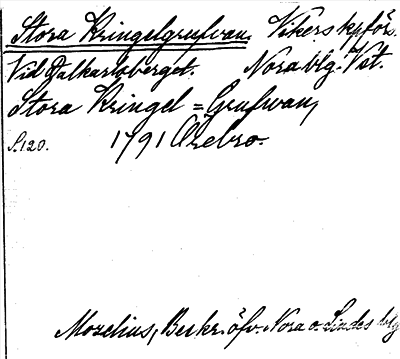 Stora Kringelgrufvan. Vikers kpför.
Vid Dalkarlsberget. Nora blg. Vst.
Stora Kringel=Grufwan,
S.120. 1791 Örebro.
Mozelius, Beskr. öfv. Nora o. Lindes blg